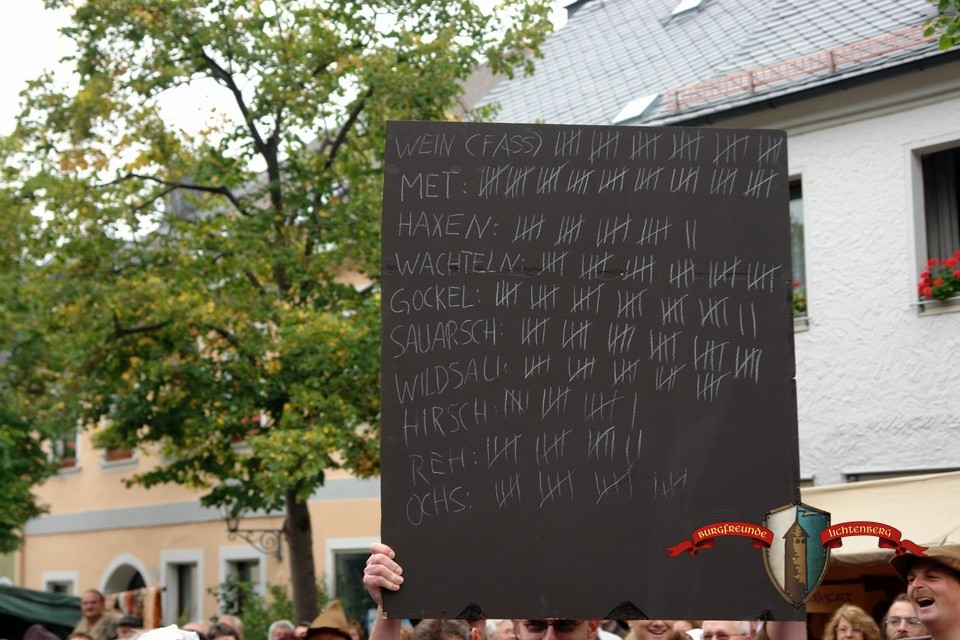 WEIN (FASS)
MET:
HAXEN:
WACHTELN:
GOCKEL:
SAUARSCH:
WILDSAU:
HIRSCH:
REH:
OCHS:
BURGFREUNDE LICHTENBERG